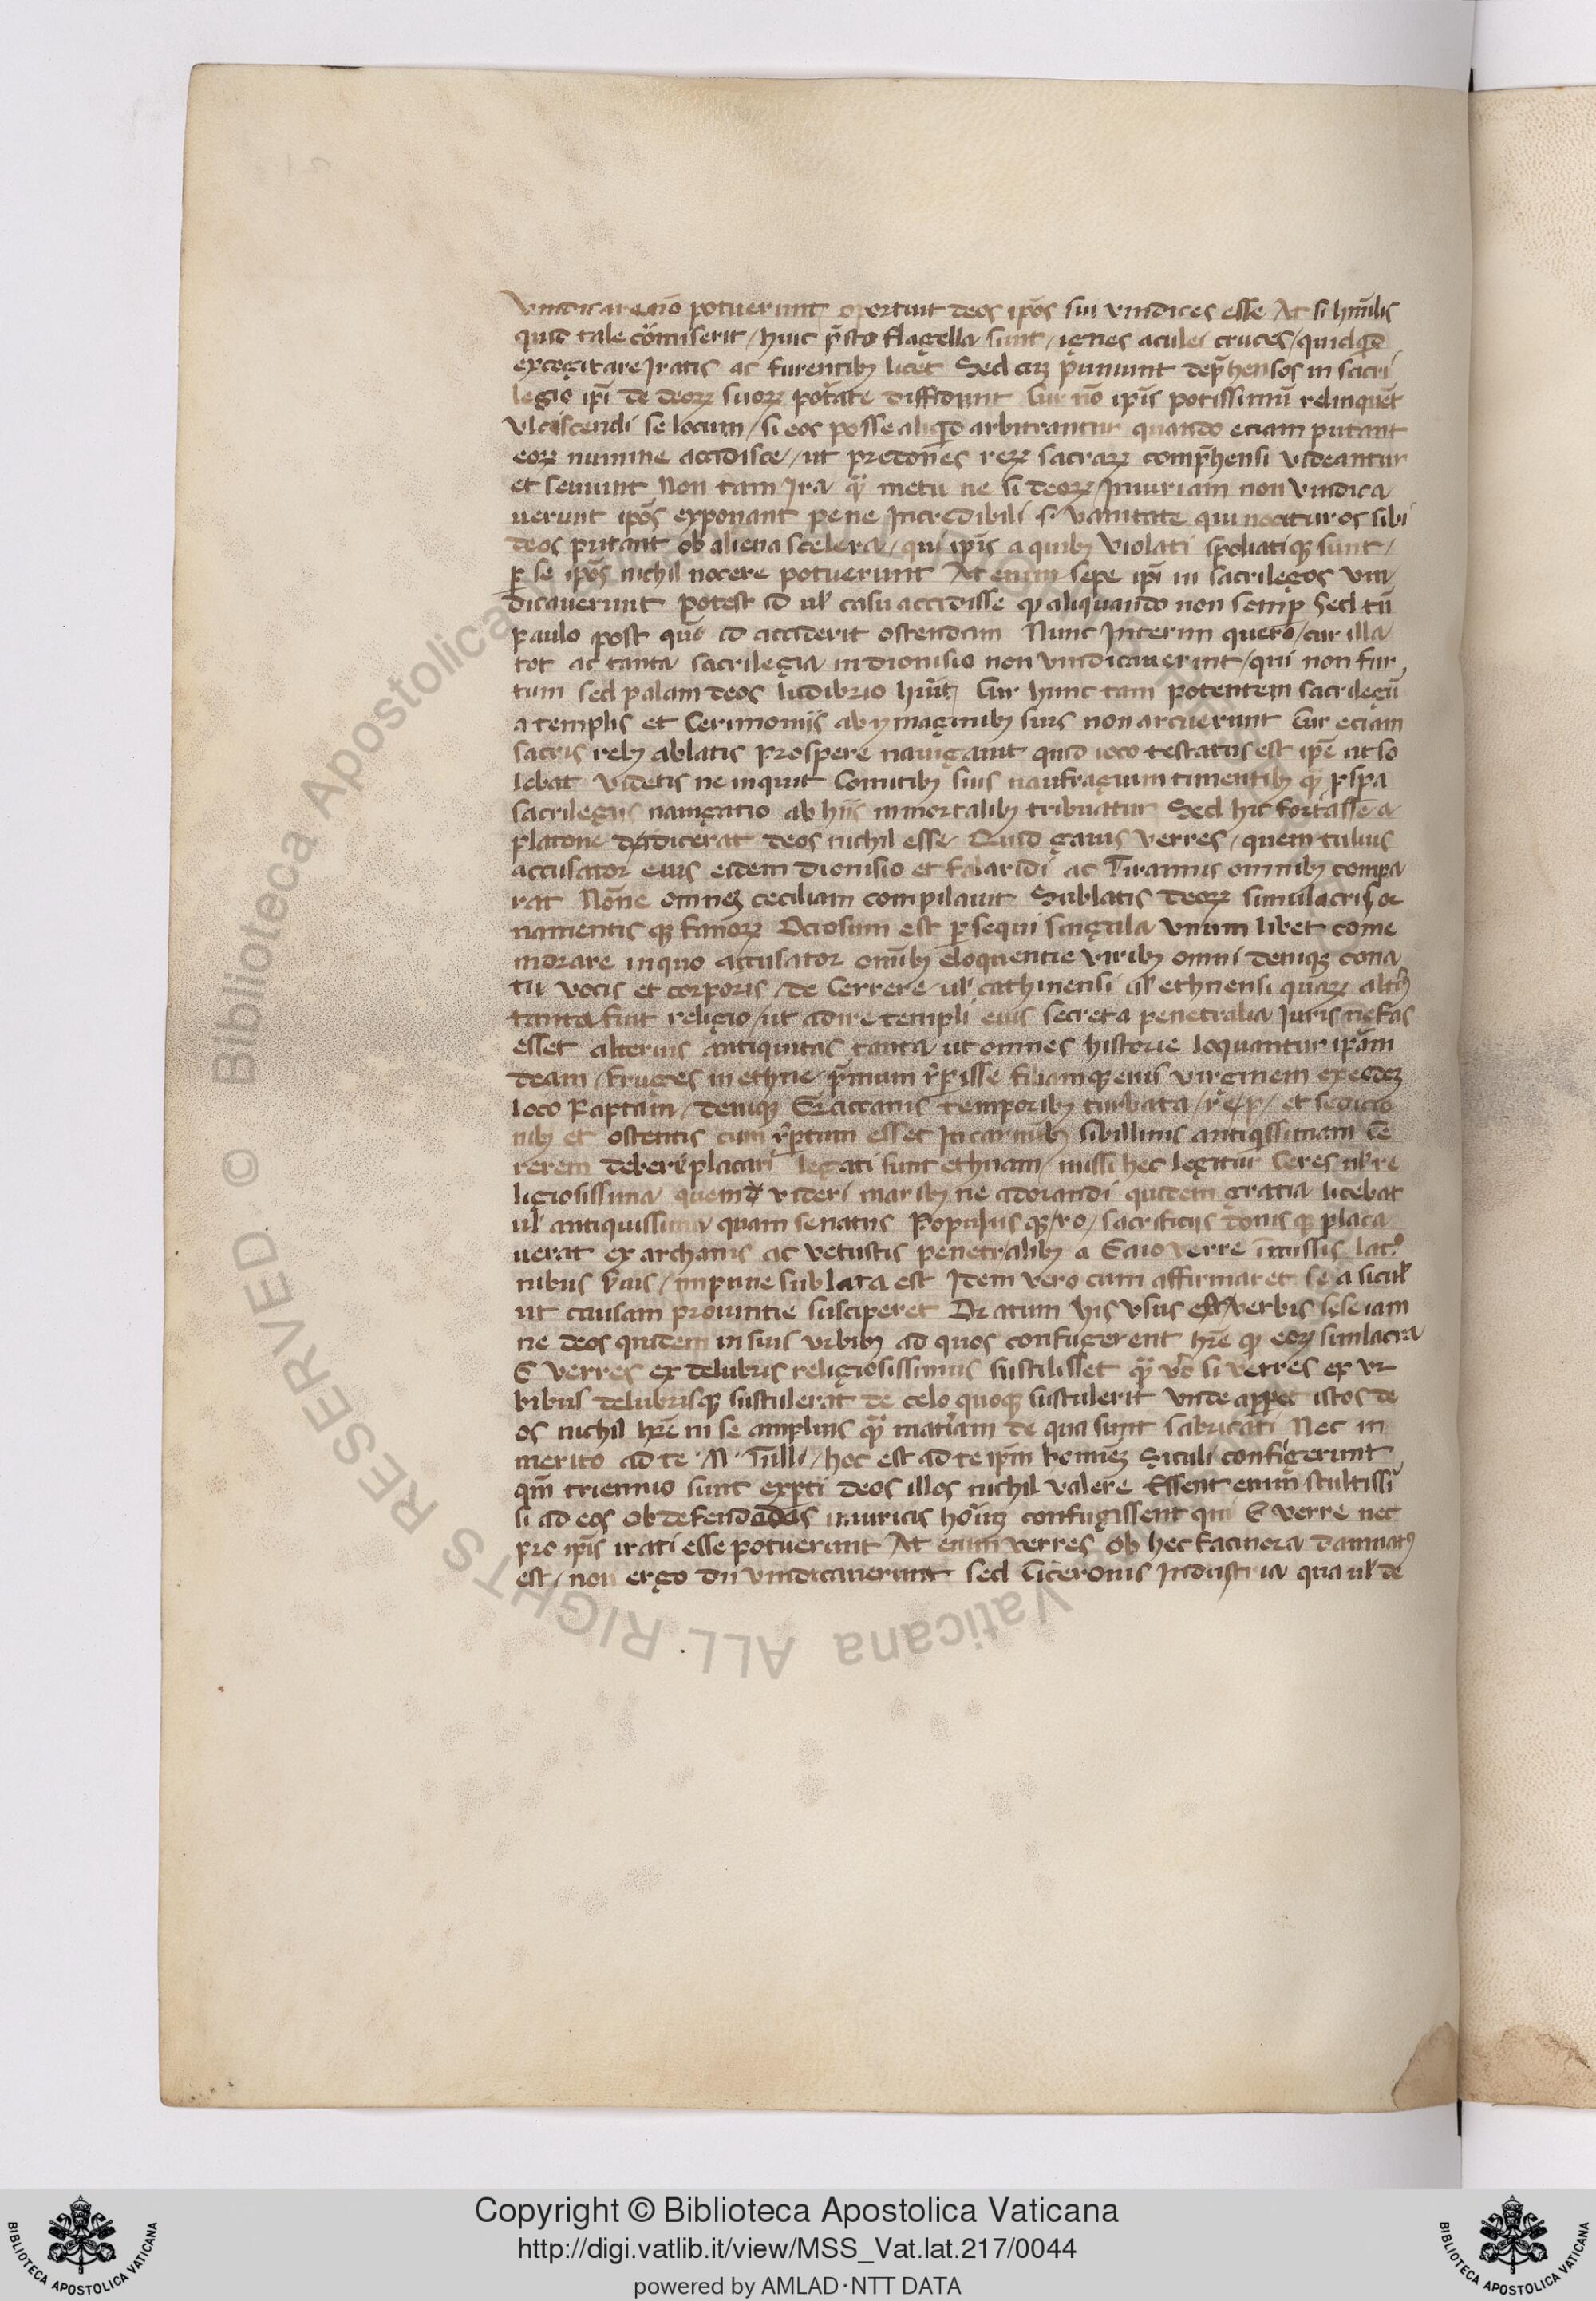 vindicare nō potuerunt oportuit deos ip̄os sui vindices esse At si hūilis
quid tale cōmiserit / huic p̄sto flagella sunt / ignes aculei cruces / quidqd̄
excogitare Iratis ac furentibꝫ licet Sed cuꝫ puniunt dep̄hensos in sacri
legio ip̄i de deoꝝ suoꝝ potāte diffidunt Cur nō ip̄is potissimū relinquēt
vlciscendi se locum / si eos posse aliqd̄ arbitrantur quando eciam putant
eoꝝ numine accidisce / ut predones reꝝ sacraꝝ comp̄hensi videantur
et seuiunt Non tam Ira qͣꝫ metu ne si deoꝝ Iniuriam non vindica
uerunt ip̄os exponant pene Incredibili si vanitate qui nocituros sibi
deos putant ob aliena scelera / qui ip̄is a quibꝫ violati spoliatiqꝫ sunt /
ꝑ se ip̄os nichil nocere potuerunt At enim sepe ip̄i in sacrilegos vin
dicauerunt potest id ul̄ casu accidisse qꝫ aliquando non semꝑ Sed tn̄
paulo post quō id acciderit ostendam Nunc Interim quero / cur illa
tot ac tanta sacrilegia in dionisio non vindicauerint / qui non fur
tum sed palam deos ludibrio hūit Cur hunc tam potentem sacrilegū
a templis et Cerimoniis ab ymaginibꝫ suis non arcuerunt Cur eciam
sacris rebꝫ ablatis prospere nauigauit quid ioco testatus est ip̄e ut so
lebat videtis ne inquit Comitibꝫ suis naufragium timentibꝫ qͣꝫ ꝓspa
sacrilegiis nauigatio ab hiis inmortalibꝫ tribuatur Sed hic fortasse a
platone didicerat deos nichil esse Quid gaius verres / quem tulius
accusator eius eidem dionisio et falaridi ac Tirannis omnibꝫ compa
rat Nōne omneꝫ ceciliam compilauit Sublatis deoꝝ simulacris or
namentisqꝫ fanoꝝ Ociosum est ꝑsequi singula vnum libet come
morare in quo accusator omībꝫ eloquentie viribꝫ omni deniqꝫ cona
tu vocis et corporis / de Cerrere ul̄ cathinensi ul̄ ethnensi quaꝝ altīꝰ
tanta fuit religio / ut adire templi eius secreta penetralia Iuris nefas
esset alterius antiquitas tanta ut omnes historie loquantur ip̄am
deam / fruges in ethne p̄mum rꝑisse filiamqꝫ eius virginem ex eodeꝫ
loco Raptam / deniqꝫ Graccanis temporibꝫ turbata / re / p / et sedicio
nibꝫ et ostentis cum rꝑtum esset In carmībꝫ sibillinis antiqͥssimam Ce
rerem deberi placari legati sunt ethnam missi hec legitur Ceres ul̄ re
ligiosissima quem videri maribꝫ ne adorandi quidem gratia licebat
ul̄ antiquissima quam senatus Populusqꝫ / ro / sacrificiis donisqꝫ placa
uerat ex archanis ac vetustis penetralibꝫ a Gaio verre īmissis latͦ
nibus suis / impune sublata est Item vero cum affirmaret se a sicul̄
ut causam prouintie susciperet Oratum his vsus est verbis sese iam
ne deos quidem in suis vrbibꝫ ad quos confugerent hr̄e qꝫ eoꝝ simlacra
G verres ex delubris religiosissimis sustilisset qͣꝫ vͦo si verres ex vr
bibus delubrisqꝫ sustulerat de celo quoqꝫ sustulerit vnde apꝑet istos de
os nichil hr̄e in se amplius qͣꝫ mat̄iam de qua sunt fabricati Nec in
merito ad te M Tulli / hoc est ad te ip̄m homīeꝫ Siculi confugerunt
qm̄ triennio sunt exꝑti deos illos nichil valere Essent enim stultissī
si ad eos ob defendadas iniuricis hoīuꝫ confugissent qui G verre nec
pro ip̄is irati esse potuerunt At enim verres ob hec facinora damnatꝰ
est / non ergo dii vindicauerunt sed Ciceronis Industria qua ul̄ de
Copyright © Biblioteca Apostolica Vaticana
http://digi.vatlib.it/view/MSS_Vat.lat.217/0044
powered by AMLAD·NTT DATA
BIBLIOTECA APOSTOLICA VATICANA
BIBLIOTECA APOSTOLICA VATICANA
© Biblioteca Apostolica Vaticana ALL RIGHTS RESERVED